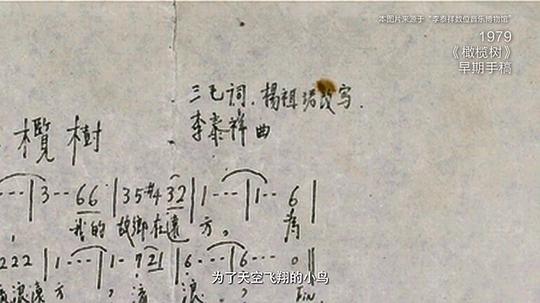 本图片来源于“李泰祥数位音乐博物馆”
1979
《橄榄树》
早期手稿
三毛词、楊祖珺改写.
李泰祥 曲
欖樹
3·· 66 | 35#4 32 | 1--- | 1-- 6 |
我的 故鄉在遠 方。 為
222 | 1--- | 1- 7 21 | 6--- | 6--- 0 ||
浪遠方, 流浪,
为了天空飞翔的小鸟